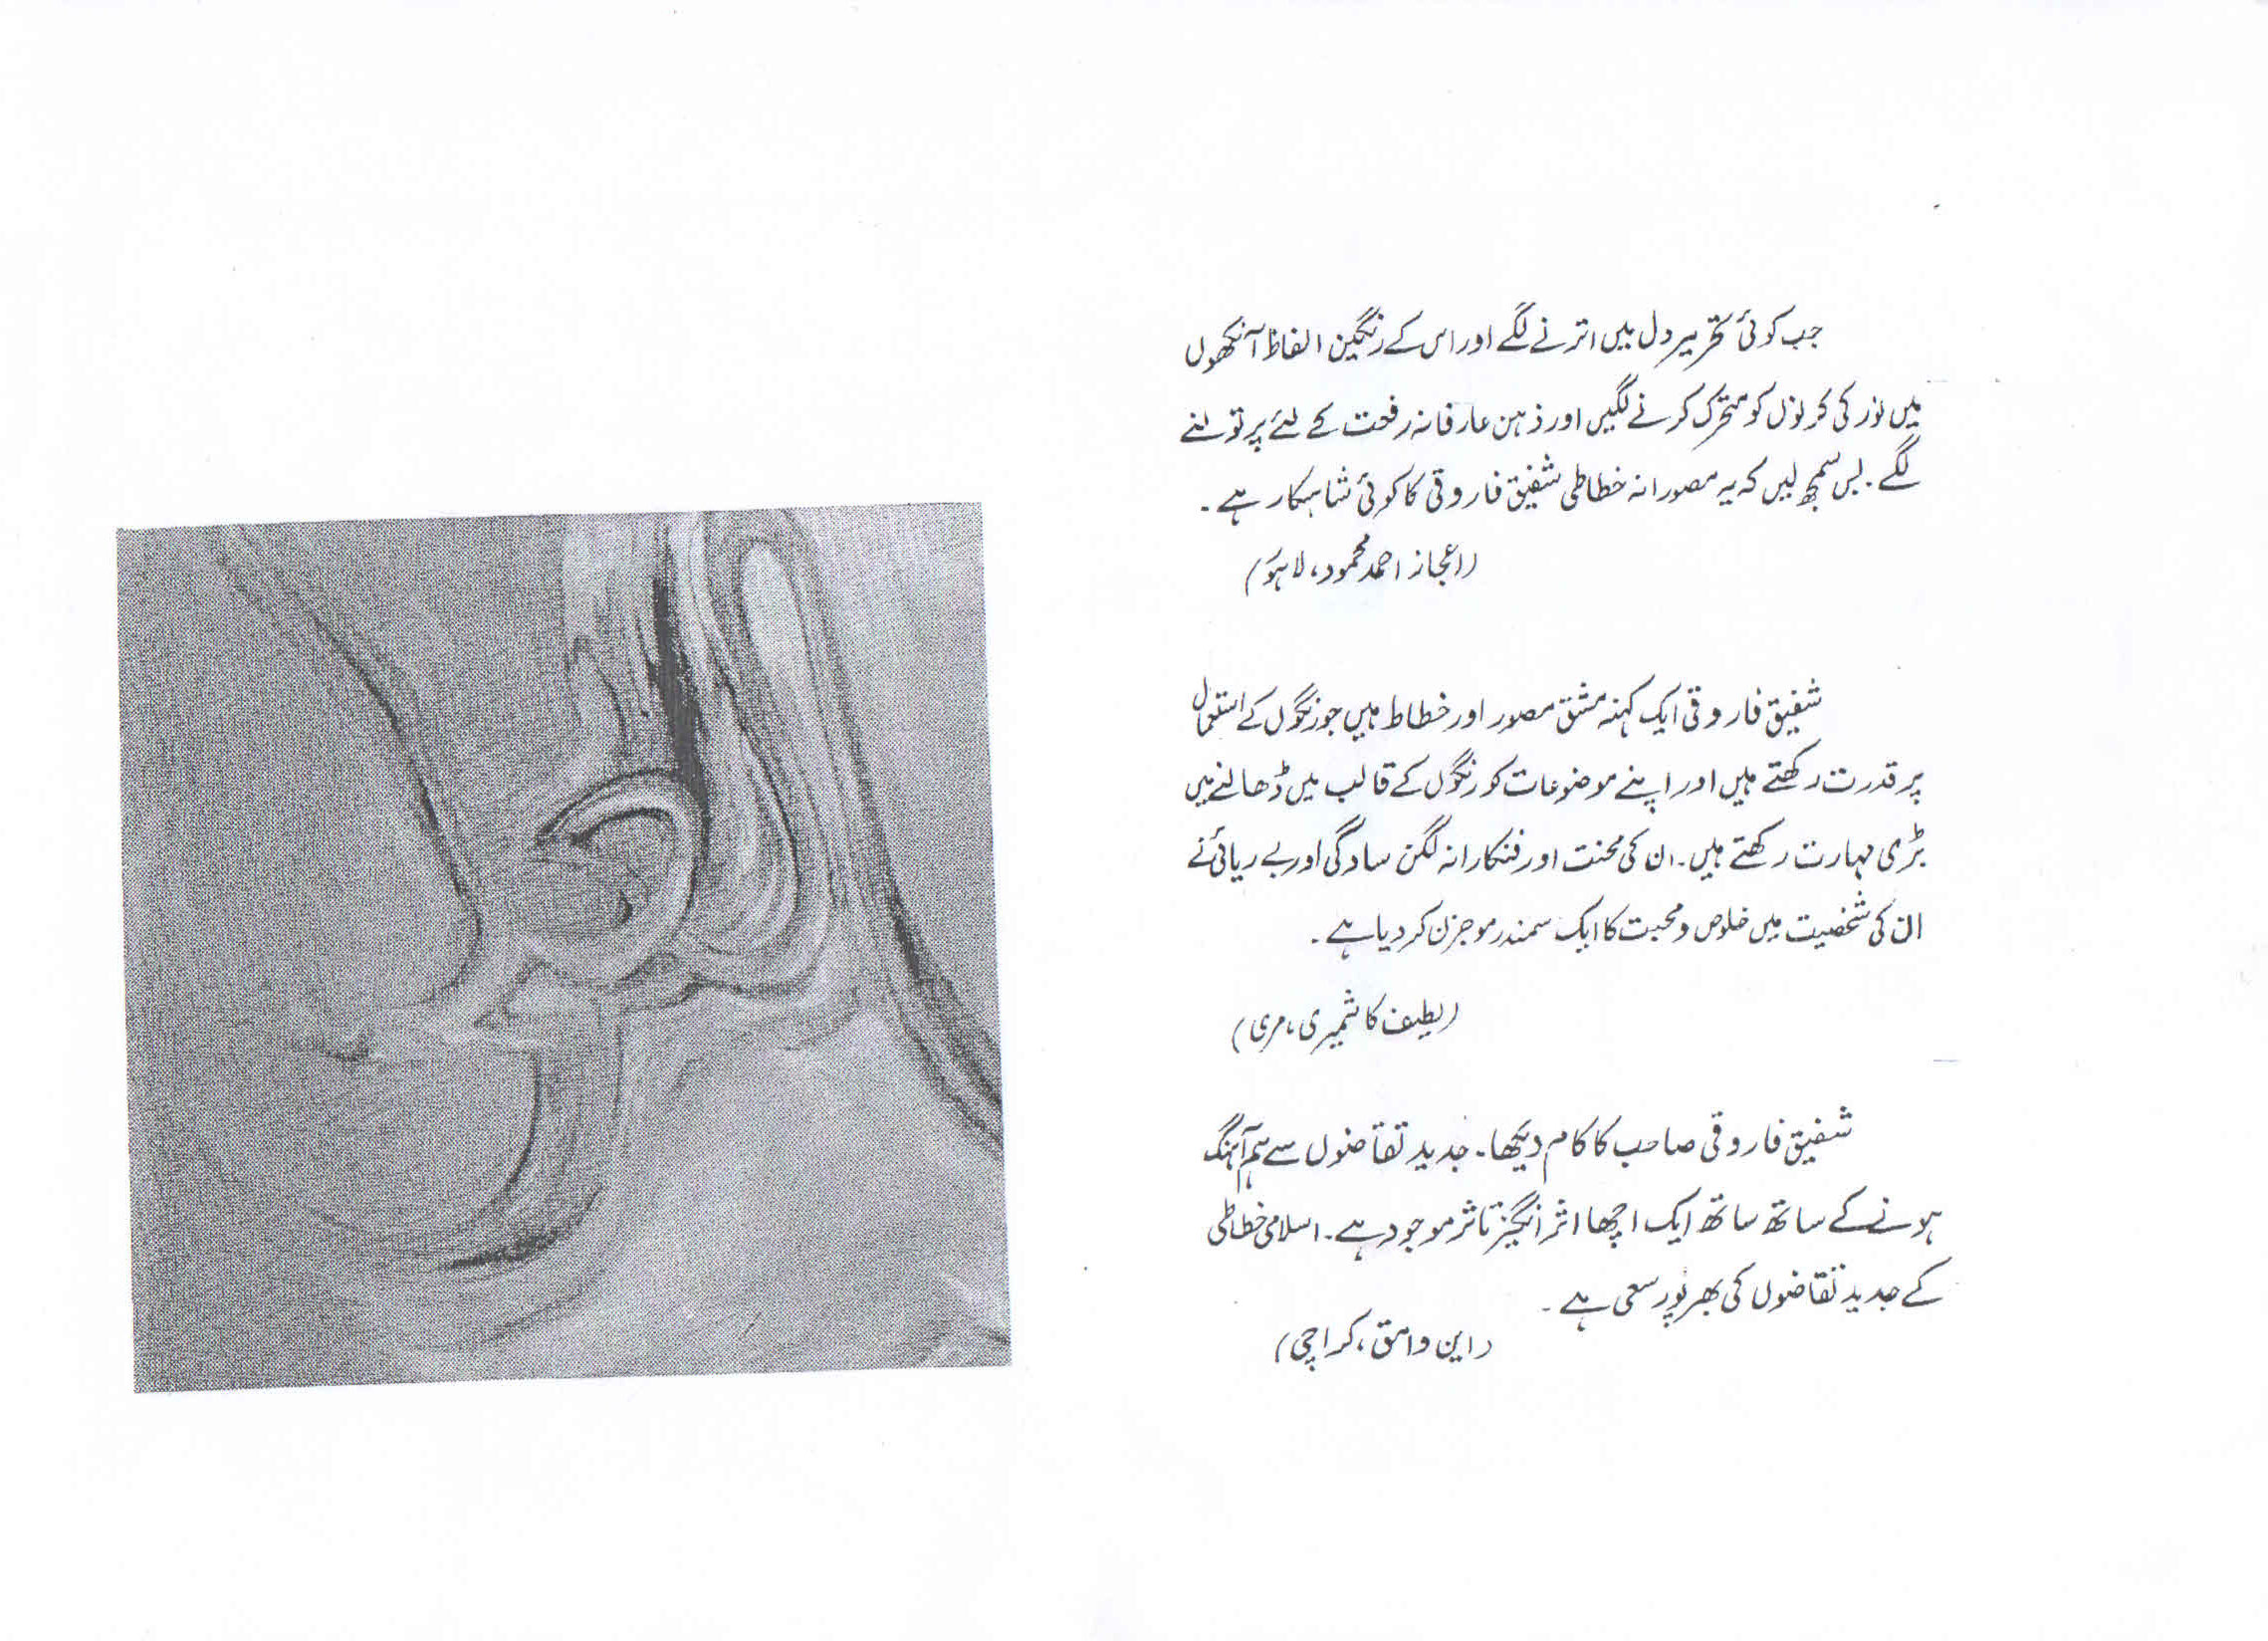 جب کوئی تحریر دل میں اترنے لگے اور اس کے رنگین الفاظ آنکھوں
میں نور کی کرنوں کو متحرک کرنے لگیں اور ذہن عارفانہ رفعت کے لئے پر تولنے
لگے۔ بس سمجھ لیں کہ یہ مصورانہ خطاطی شفیق فاروقی کا کوئی شاہکار ہے۔
(اعجاز احمد محمود، لاہور)
شفیق فاروقی ایک کہنہ مشق مصور اور خطاط ہیں جو رنگوں کے استعمال
پر قدرت رکھتے ہیں اور اپنے موضوعات کو رنگوں کے قالب میں ڈھالنے میں
بڑی مہارت رکھتے ہیں۔ ان کی محنت اور فنکارانہ لگن سادگی اور بے ریائی نے
ان کی شخصیت میں خلوص و محبت کا ایک سمندر موجزن کر دیا ہے۔
(لطیف کاشمیری، مری)
شفیق فاروقی صاحب کا کام دیکھا۔ جدید تقاضوں سے ہم آہنگ
ہونے کے ساتھ ساتھ ایک اچھا اثر انگیز تاثر موجود ہے۔ اسلامی خطاطی
کے جدید تقاضوں کی بھرپور سعی ہے۔
(این وامق، کراچی)